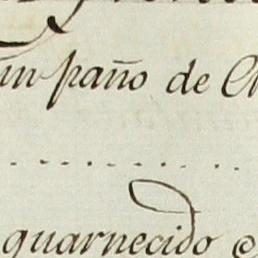 un paño de
guarnecido